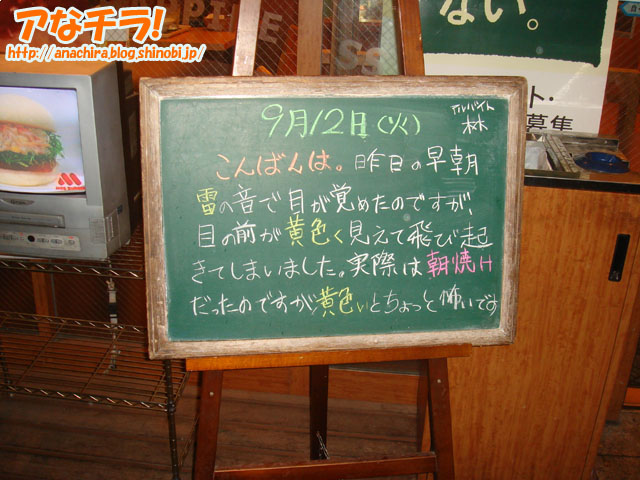 アなチラ!
http://anachira.blog.shinobi.jp/
ない。
ト・
募集
9月12日(火)
アルバイト
林
こんばんは。昨日の早朝
雷の音で目が覚めたのですが、
目の前が黄色く見えて飛び起
きてしまいました。実際は朝焼け
だったのですが黄色いとちょっと怖いです